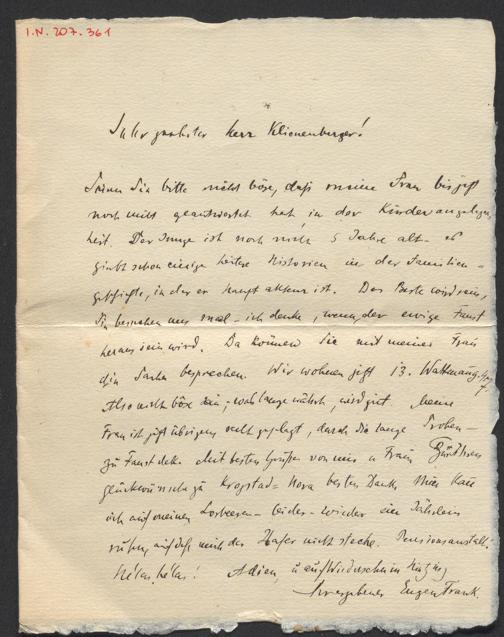 I.N. 207.361
Sehr geehrter Herr Klienenberger!
Seien Sie bitte nicht böse, daß meine Frau bis jetzt
noch nicht geantwortet hat, in der Kinderangelegen
heit. Der Junge ist noch nicht 5 Jahre alt - es
giebt schon einige heitere Historien in der Familien-
geschichte, in der er Hauptakteur ist. Das Beste wird sein,
Sie besprechen uns mal - ich denke, wenn der ewige Faust
heraus sein wird. Da können Sie mit meiner Frau
die Sache besprechen. Wir wohnen jetzt 13. Wattmanng.
7.
Also nicht böse sein, was lange währt, wird gut. Meine
Frau ist jetzt übrigens sehr geplagt, durch die lange Proben-
zu Faust etc. Mit besten Grüßen von mir u Frau. Für Ihren
glückwunsch zu Kropstad = Nora besten Dank. Nun kan
ich auf meinen Lorbeeren - leider - wieder ein Jährchen
ruhen, auf daß mich der Hafer nicht steche. Pensionsanstalt.
hélas, hélas! Adieu, u auf Wiedersehen in
Ihr ergebener Eugen Frank.